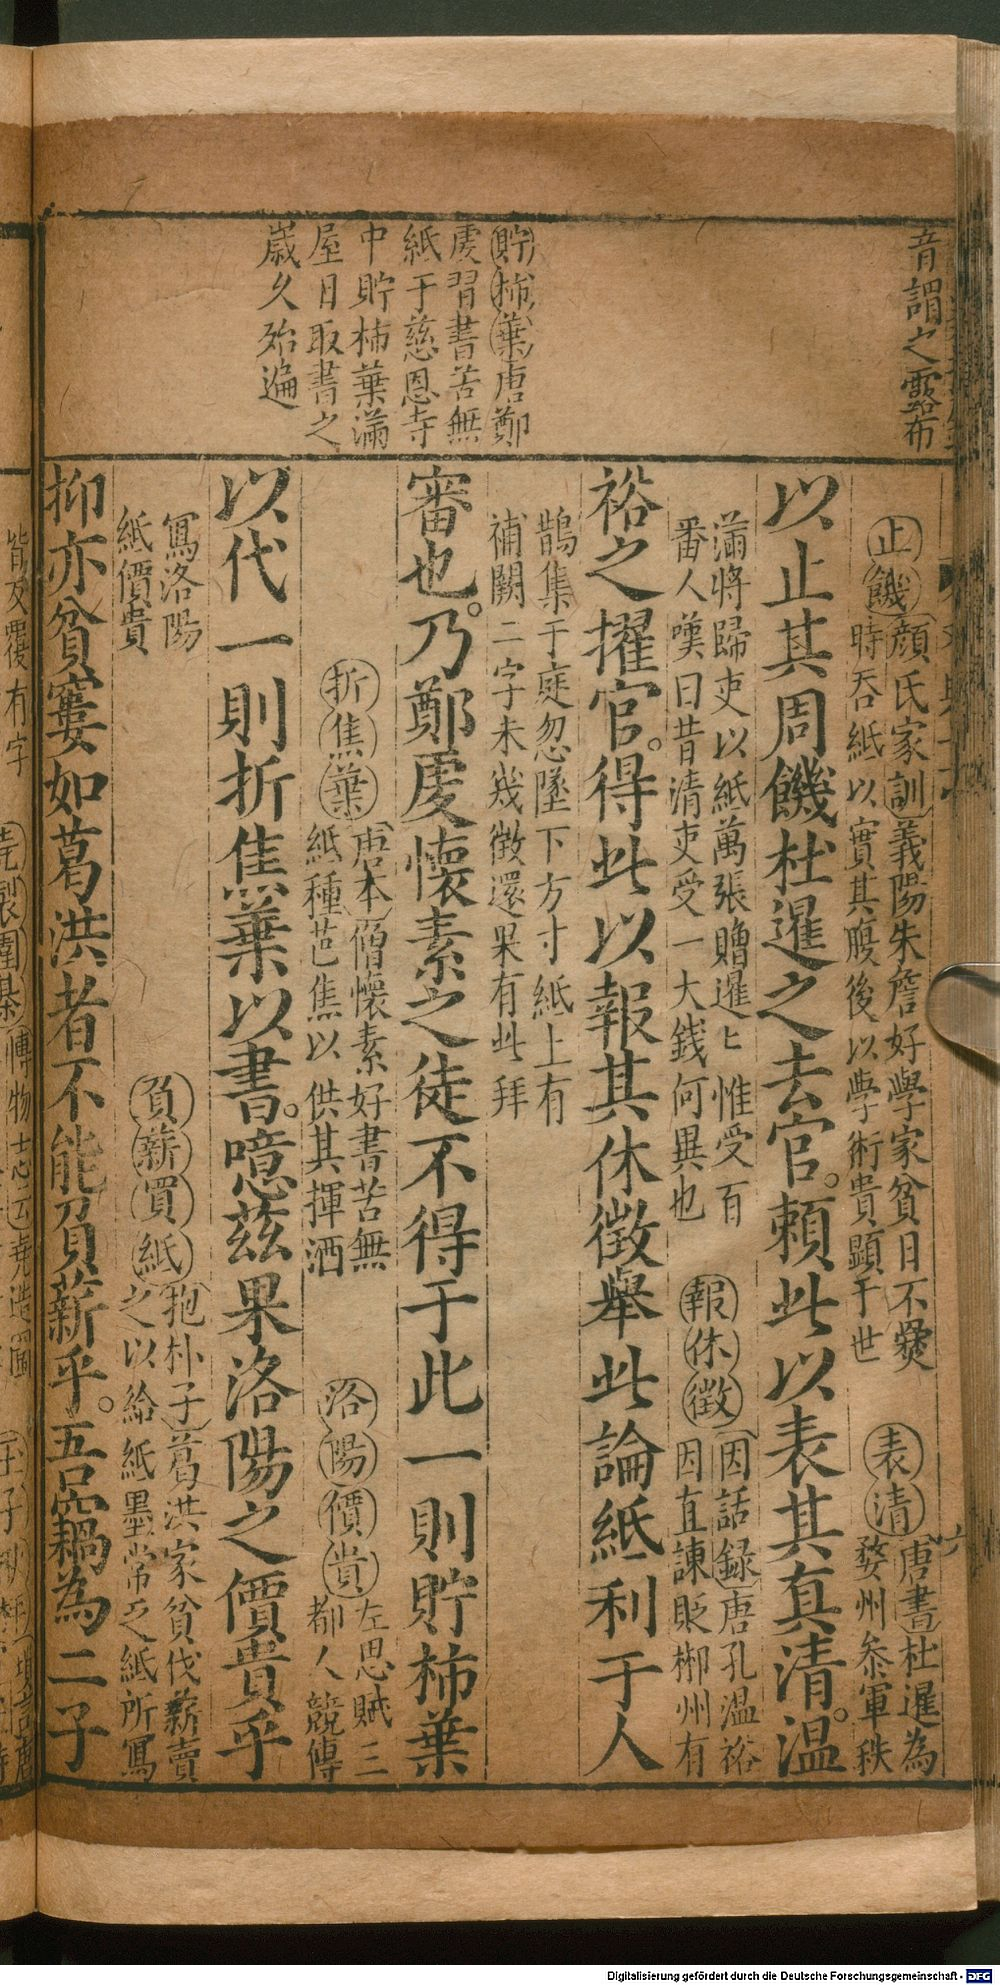 音謂之露布
貯柿葉唐鄭
虔習書苦無
紙于慈恩寺
中貯柿葉滿
屋日取書之
歲久殆遍
止饑顏氏家訓義陽朱詹好學家貧日不爨
時吞紙以實其腹後以學術貴顯于世
表清唐書杜暹為
婺州叅軍秩
以止其周饑杜暹之去官。頼此以表其真清。温
滿將歸吏以紙萬張贈暹〻惟受百
番人嘆曰昔清吏受一大錢何異也
報休徵因話録唐孔温裕
因直諫貶郴州有
裕之擢官。得此以報其休徴舉此論紙利于人
鵲集于庭忽墜下方寸紙上有
補闕二字未幾徴還果有此拜
審也。乃鄭虔懷素之徒不得于此一則貯柿葉
折焦葉唐本僧懷素好書苦無
紙種芭焦以供其揮洒
洛陽價貴左思賦三
都人競傳
以代一則折焦葉以書。噫茲果洛陽之價貴乎
寫洛陽
紙價貴
負薪買紙抱朴子葛洪家貧伐薪賣
之以給紙墨常乏紙所寫
抑亦貧窶如葛洪者不能負薪乎。吾竊為二子
皆反覆有字